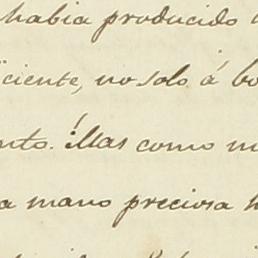 habia producido
iciente, no solo á bo
nto. ¡Mas como m
a mano preciosa h